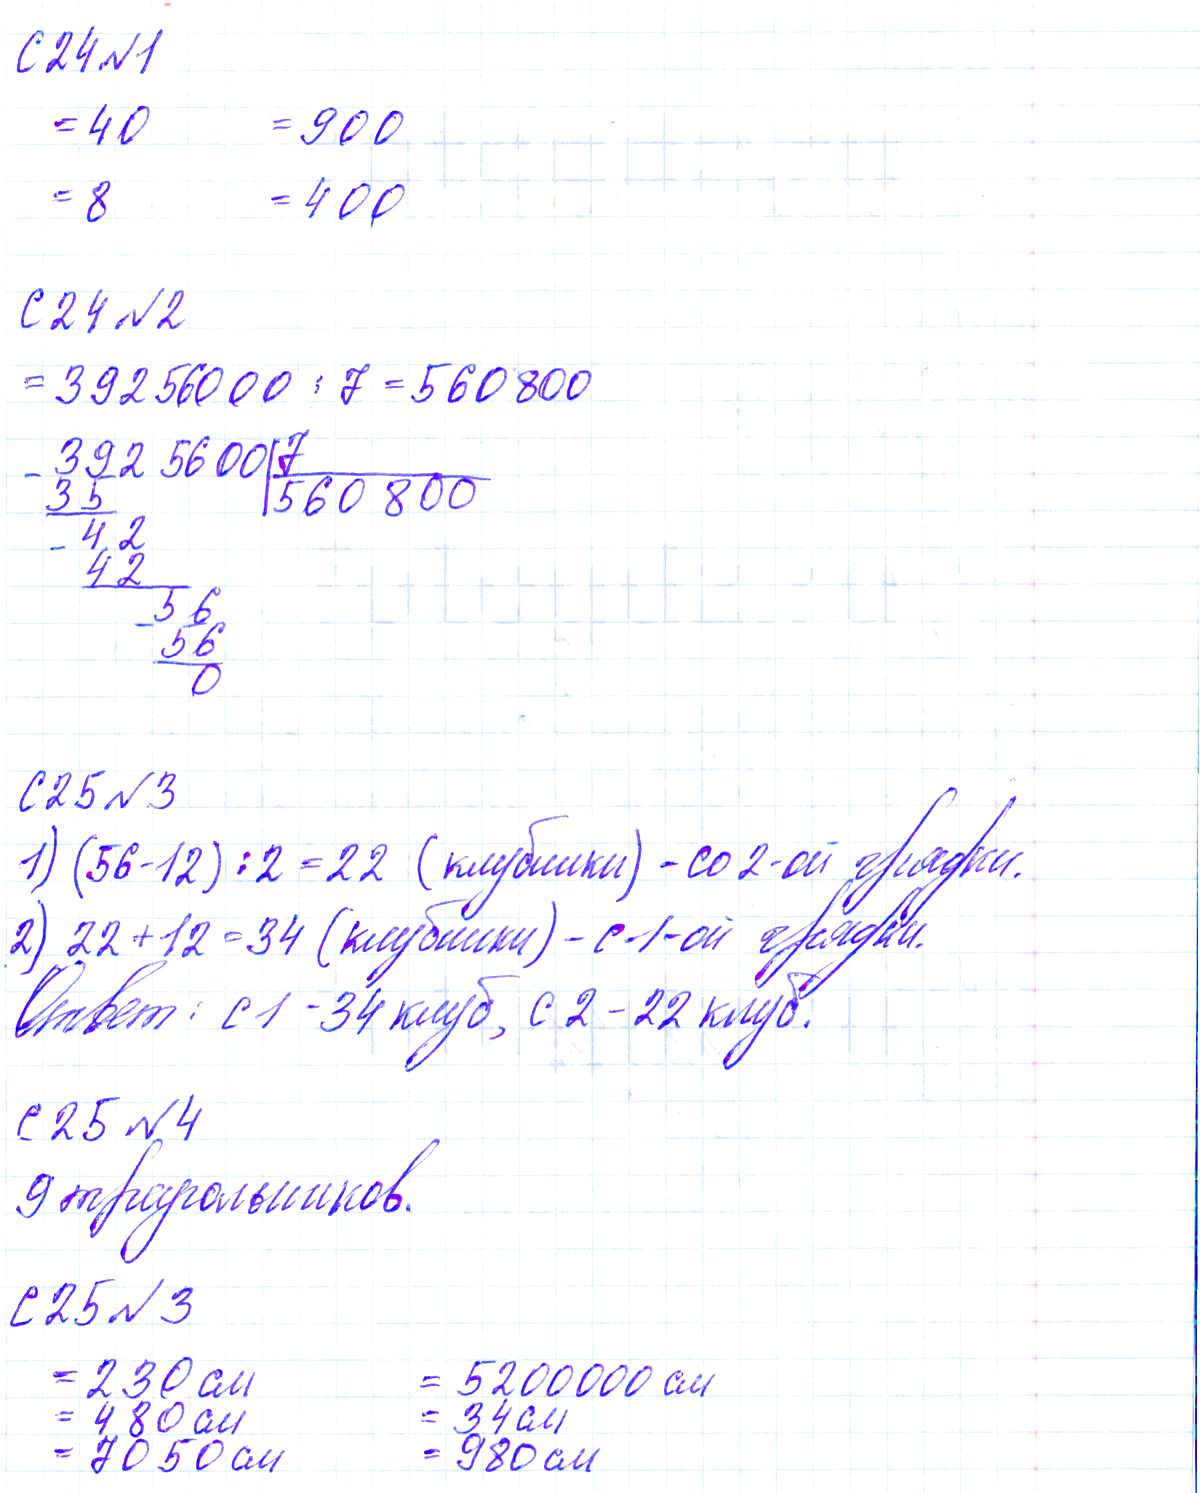 С 24 №1
= 40 = 900
= 8 = 400
С 24 №2
= 39256000 : 7 = 560800
- 3925600 | 7
35 | 560800
- 42
42
- 56
56
0
С 25 №3
1) (56-12) : 2 = 22 (клубники) - со 2-ой грядки.
2) 22 + 12 = 34 (клубники) - с 1-ой грядки.
Ответ: с 1 - 34 клуб, с 2 - 22 клуб.
С 25 №4
9 треугольников.
С 25 №3
= 230 см = 5200000 см
= 480 см = 34 см
= 7050 см = 980 см